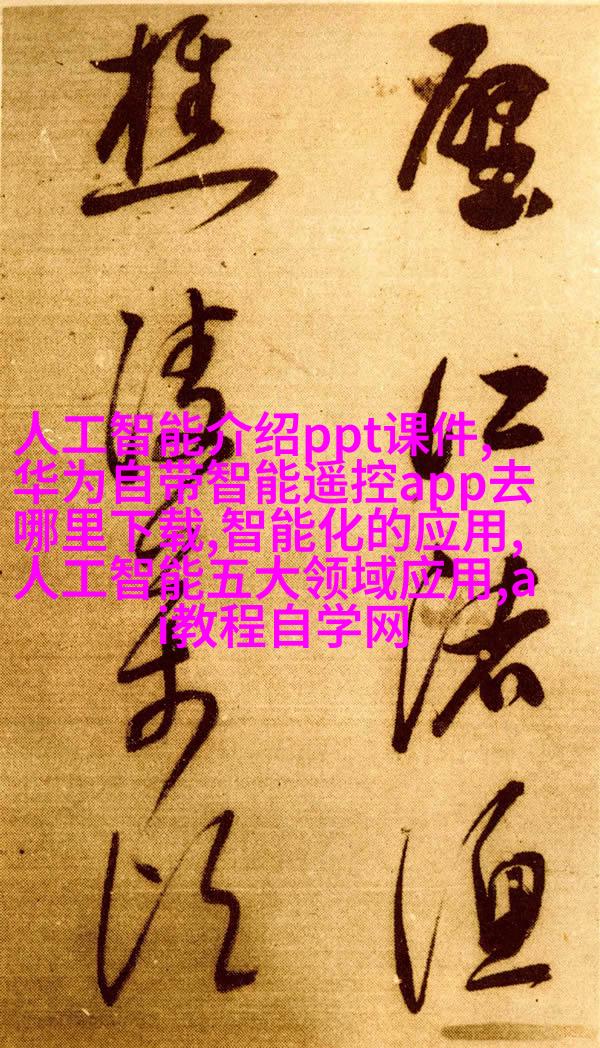 江渚漁
樵
人工智能介绍ppt课件,
华为自带智能遥控app去
哪里下载,智能化的应用,
人工智能五大领域应用,a
i教程自学网